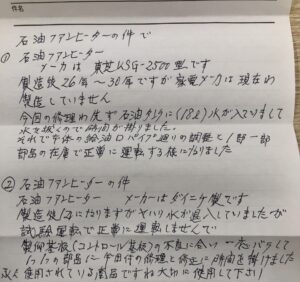 件名
石油ファンヒーターの件で
① 石油ファンヒーター
メーカは 東芝KSG-2500型です
製造後26年～30年ですが家電メーカは現在わ
製造していません
今回の修理わ先ず石油タンクに(18ℓ)水が入っていまして
水を抜くので時間が掛りました。
それで本体の給油口パイプ廻りの調整と1部一部
部品の在庫で正常に運転する様になりました
② 石油ファンヒーターの件
石油ファンヒーター メーカはダイニチ製です
製造後 になりますがやはり水が混入していましたが
試験運転で正常にしませんで
製御基板(コントロール基板)の不良に会い 一応バラして
1つ1つの部品に 修理と修正に時間を掛けました
使用されている商品ですね大切に使用して下さい